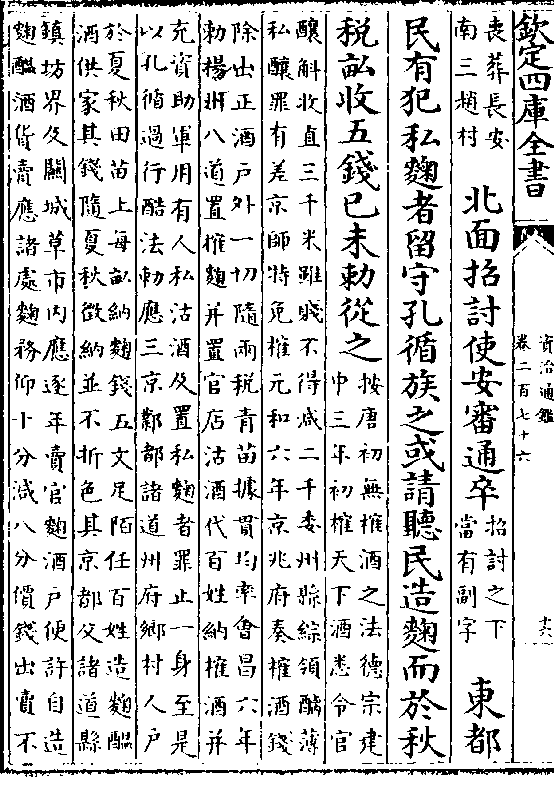 欽定四庫全書
資治通鑑
卷二百七十六
十六
喪葬長安
南三趙村
北面招討使安審通卒
招討之下
當有副字
東都
民有犯私麴者留守孔循族之或請聽民造麴而於秋
稅畝收五錢已未勅從之
按唐初無榷酒之法德宗建
中三年初榷天下酒悉令官
釀斛收直三千米雖賤不得减二千委州縣綜領醨薄
私釀罪有差京師特免榷元和六年京兆府奏榷酒錢
除出正酒戶外一切隨兩税青苗據貫均率會昌六年
勅楊州八道置榷麴并置官店沽酒代百姓納榷酒并
充資助軍用有人私沽酒及置私麴者罪止一身至是
以孔循過行酷法勅應三京鄴都諸道州府鄉村人戶
於夏秋田苗上每畝納麴錢五文足陌任百姓造麴醖
酒供家其錢隨夏秋徴納並不折色其京都父諸道縣
鎮坊界及關城草市内應逐年賣官麴酒戶便許自造
麴醖酒貨賣應諸處麴務仰十分减八分價錢出賣不